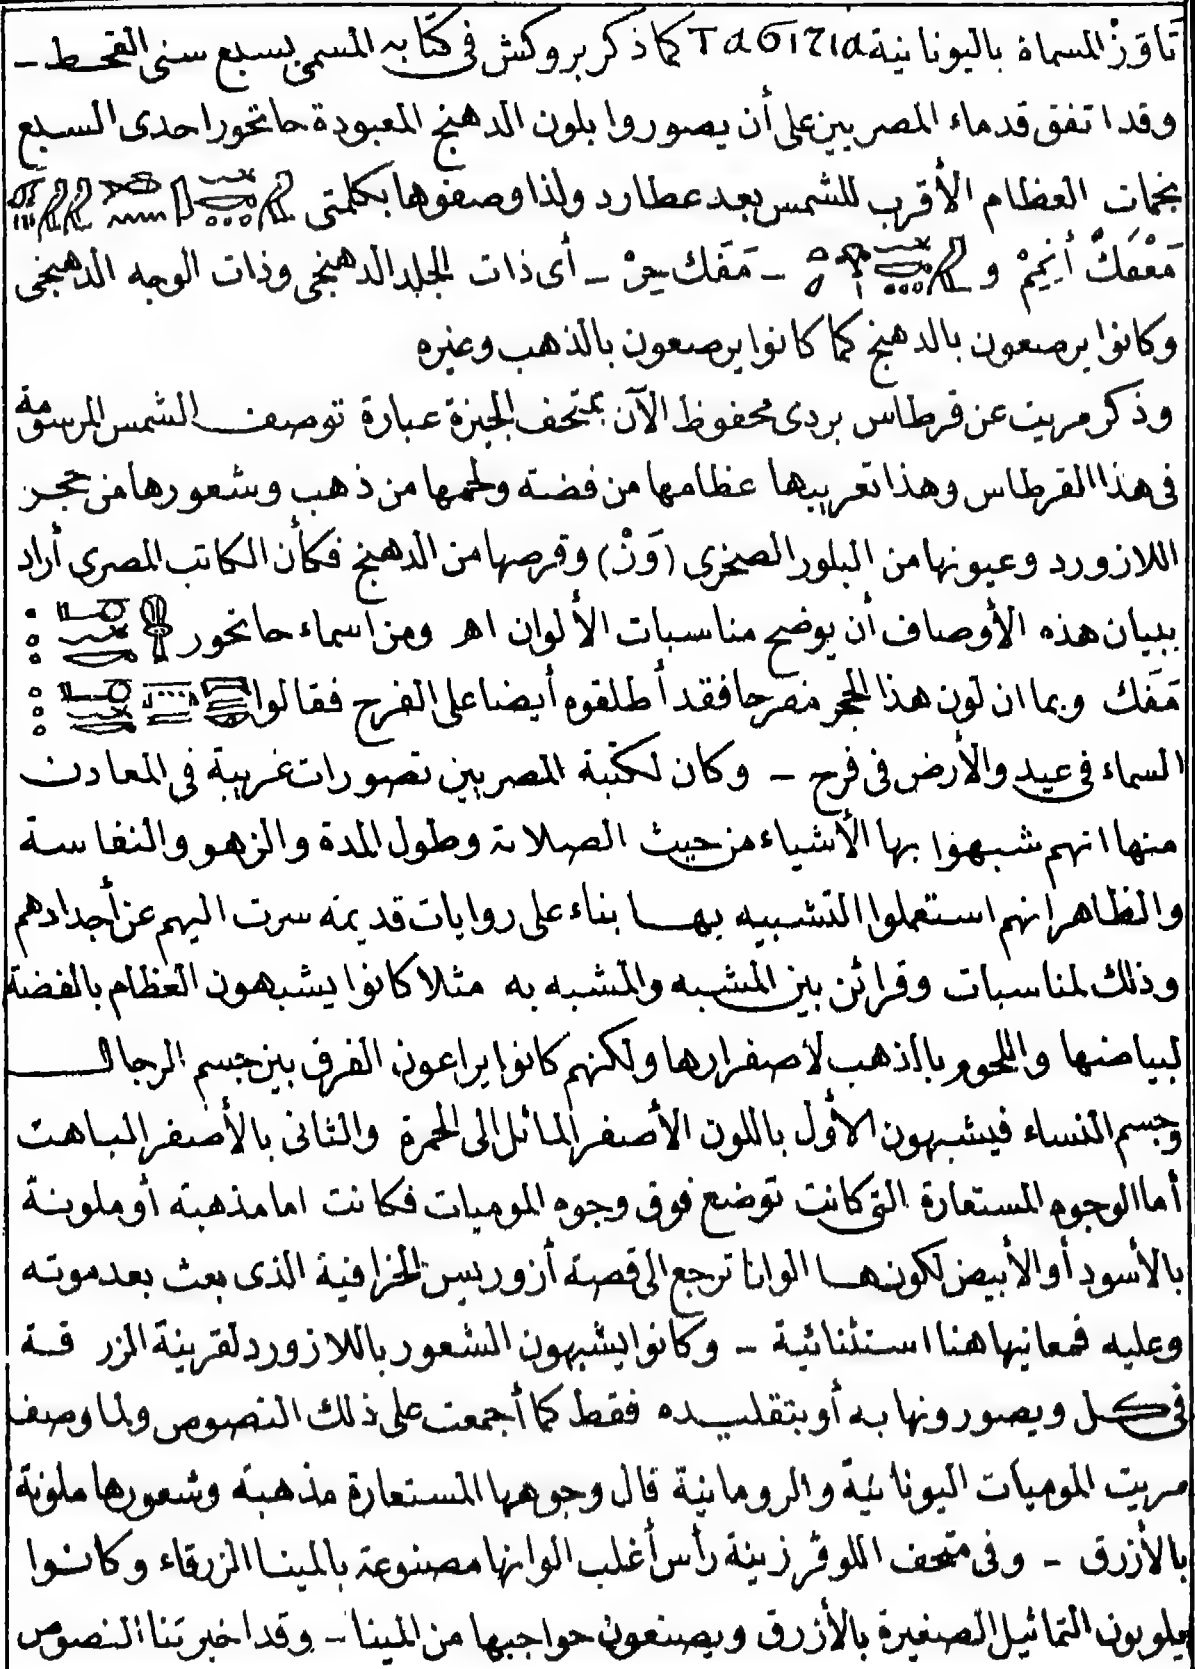 تَاوِزْ المسماة باليونانية Ταбιτια كما ذكر بروكش فى كتابه المسمى بسبع سنى القحط ـ
وقد اتفق قدماء المصريين على أن يصوروا بلون الدهنج المعبودة حاتحور احدى السبع
نجمات العظام الأقرب للشمس بعد عطارد ولذا وصفوها بكلمتى
مَعْفَكْ أَنِيِمْ و ـ مَفَك حِرْ ـ أى ذات الجلد الدهنجى وذات الوجه الدهنجى
وكانوا يرصعون بالدهنج كما كانوا يرصعون بالذهب وغيره
وذكر مريت عن قرطاس بردى محفوظ الآن بمتحف الجيزة عبارة توصف الشمس المرسومة
فى هذا القرطاس وهذا تعريبها عظامها من فضة ولحمها من ذهب وشعورها من حجر
اللازورد وعيونها من البلور الصخرى (وَزْ) وقرصها من الدهنج فكأن الكاتب المصرى أراد
ببيان هذه الأوصاف أن يوضح مناسبات الألوان اهـ ومن اسماء حاتحور
مَفَك وبما ان لون هذا الحجر مفرحا فقد أطلقوه أيضا على الفرح فقالوا
السماء فى عيد والأرض فى فرح ـ وكان لكتبة المصريين تصورات غريبة فى المعادن
منها انهم شبهوا بها الأشياء من حيث الصلابة وطول المدة والزهو والنفاسة
والظاهر انهم استعملوا التشبيه بها بناء على روايات قديمة سرت اليهم عن أجدادهم
وذلك لمناسبات وقرائن بين المشبه والمشبه به مثلا كانوا يشبهون العظام بالفضة
لبياضها واللحوم بالذهب لاصفرارها ولكنهم كانوا يراعون الفرق بين جسم الرجال
وجسم النساء فيشبهون الأول باللون الأصفر المائل الى الحمرة والثانى بالأصفر الباهت
أما الوجوه المستعارة التى كانت توضع فوق وجوه الموميات فكانت اما مذهبة أو ملونة
بالأسود أو الأبيض لكونها الوانا ترجع الى قصة أزوريس الخرافية الذى بعث بعد موته
وعليه فمعانيها هنا استثنائية ـ وكانوا يشبهون الشعور باللازورد لقرينة الزرقة
فى كل ويصورونها به أو بتقليده فقط كما أجمعت على ذلك النصوص ولما وصف
مريت الموميات اليونانية والرومانية قال وجوهها المستعارة مذهبة وشعورها ملونة
بالأزرق ـ وفى متحف اللوفر زينة رأس أغلب الوانها مصنوعة بالمينا الزرقاء وكانوا
يلونون التماثيل الصغيرة بالأزرق ويصنعون حواجبها من المينا ـ وقد اخبرتنا النصوص